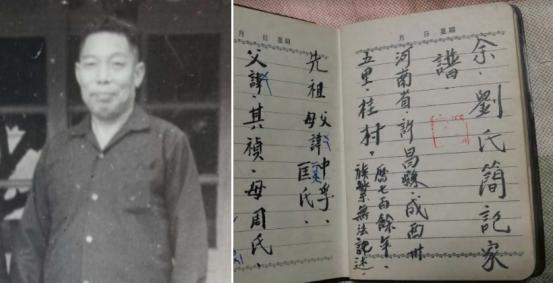 月 日 星期
余.劉氏簡記家
譜.
河南省許昌縣.成西卅
五里.桂村.
曆七百餘年.
族繁無法記述.
月 日 星期
先祖
父諱中孚.
母諱匡氏.
父諱.其禎.母周氏.